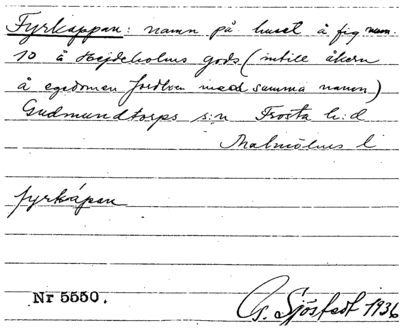 Fyrkappan: namn på huset å fig num.
10 å Hejdeholms gods (intill åkern
å egendomen Jordbon med samma namn)
Gudmundtorps s:n Frosta h:d
Malmöhus l
fyrkápan
Nr 5550.
G. Sjöstedt 1936